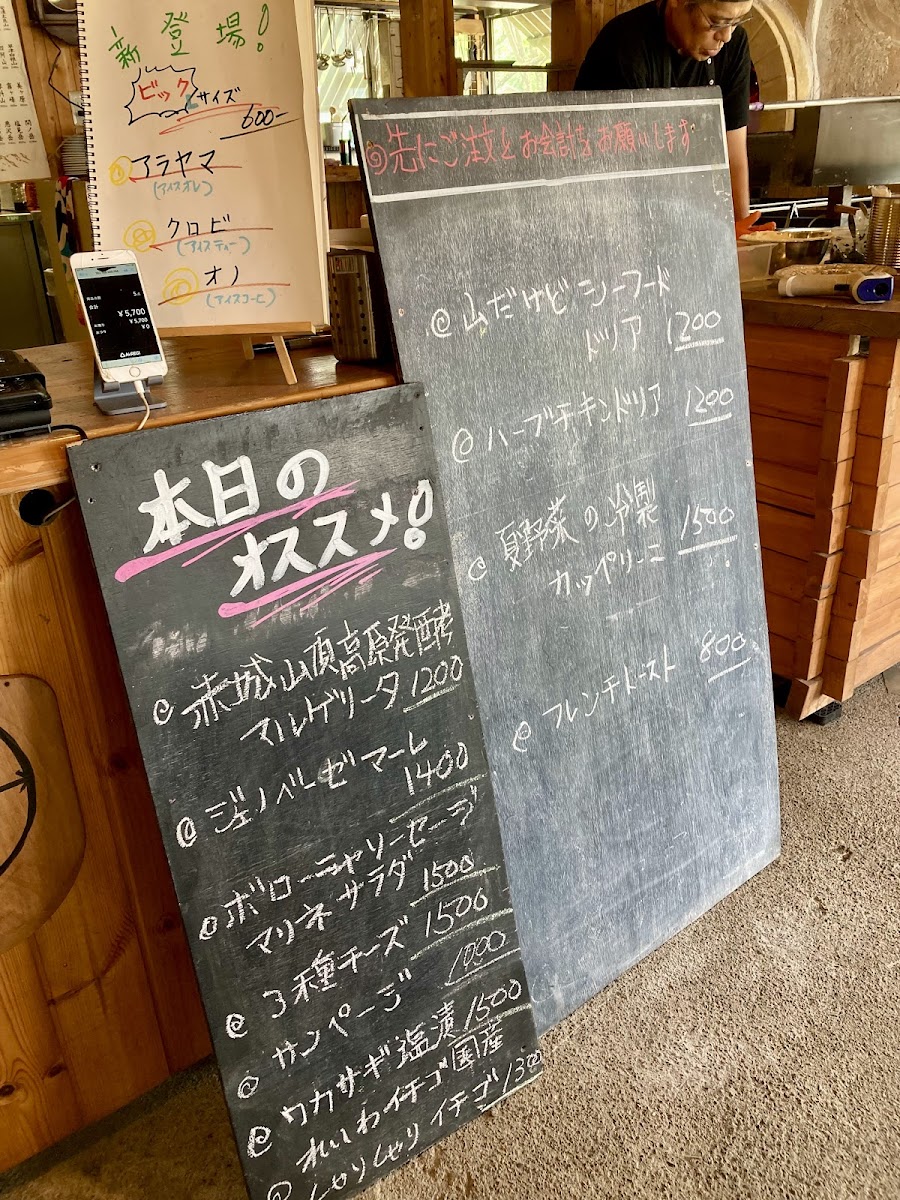 新登場!
ビック
サイズ
600-
① アラヤマ
(アイスオレ)
② クロビ
(アイスティー)
オノ
(アイスコーヒ)
合計
¥5,700
¥5,700
¥0
先にご注文とお会計をお願いします
山だけどシーフード
ドリア 1200
ハーブチキンドリア 1200
夏野菜の冷製 1500
カッペリーニ
フレンチトースト 800
本日の
オススメ!
赤城山頂高原発酵
マルゲリータ 1200
ジェノベーゼマーレ
1400
ボローニャソーセージ
マリネサラダ 1500
3種チーズ 1500
サンページ 1000
ワカサギ塩漬 1500
れいわイチゴ国産
しゃりしゃりイチゴ